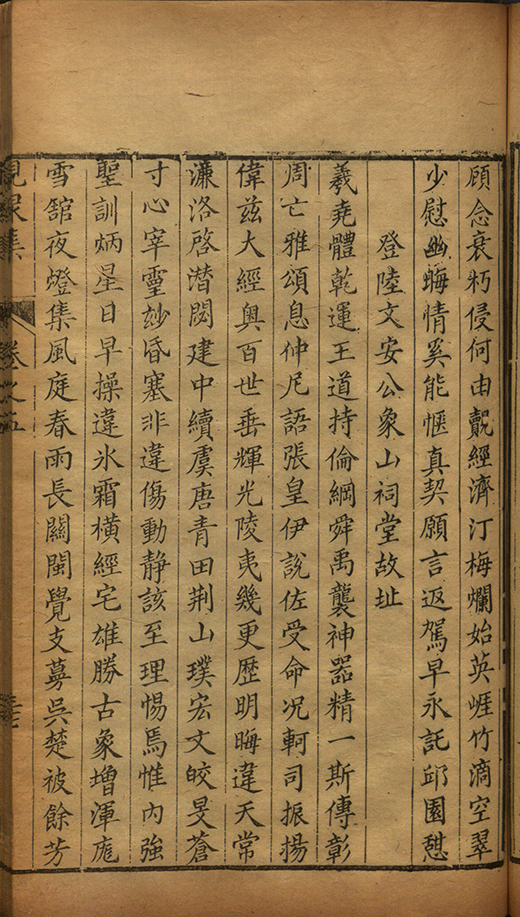 顧念衰朽侵何由覿經濟汀梅爛始英崕竹滴空翠
少慰幽晦情奚能愜真契願言返駕早永託邱園憇
登陸文安公象山祠堂故址
羲堯體乾運王道持倫綱舜禹襲神器精一斯傳彰
周亡雅頌息仲尼語張皇伊說佐受命况軻司振揚
偉兹大經奥百世垂輝光陵夷幾更歴明晦違天常
濂洛啓潜閟建中續虞唐青田荆山璞宏文皎旻蒼
寸心宰靈妙昏塞非違傷動静該至理惕焉惟内強
聖訓炳星日早操違氷霜横經宅雄勝古象增渾庬
雪舘夜燈集風庭春雨長關閩覺支蕚吳楚被餘芳
峴泉集 卷之五